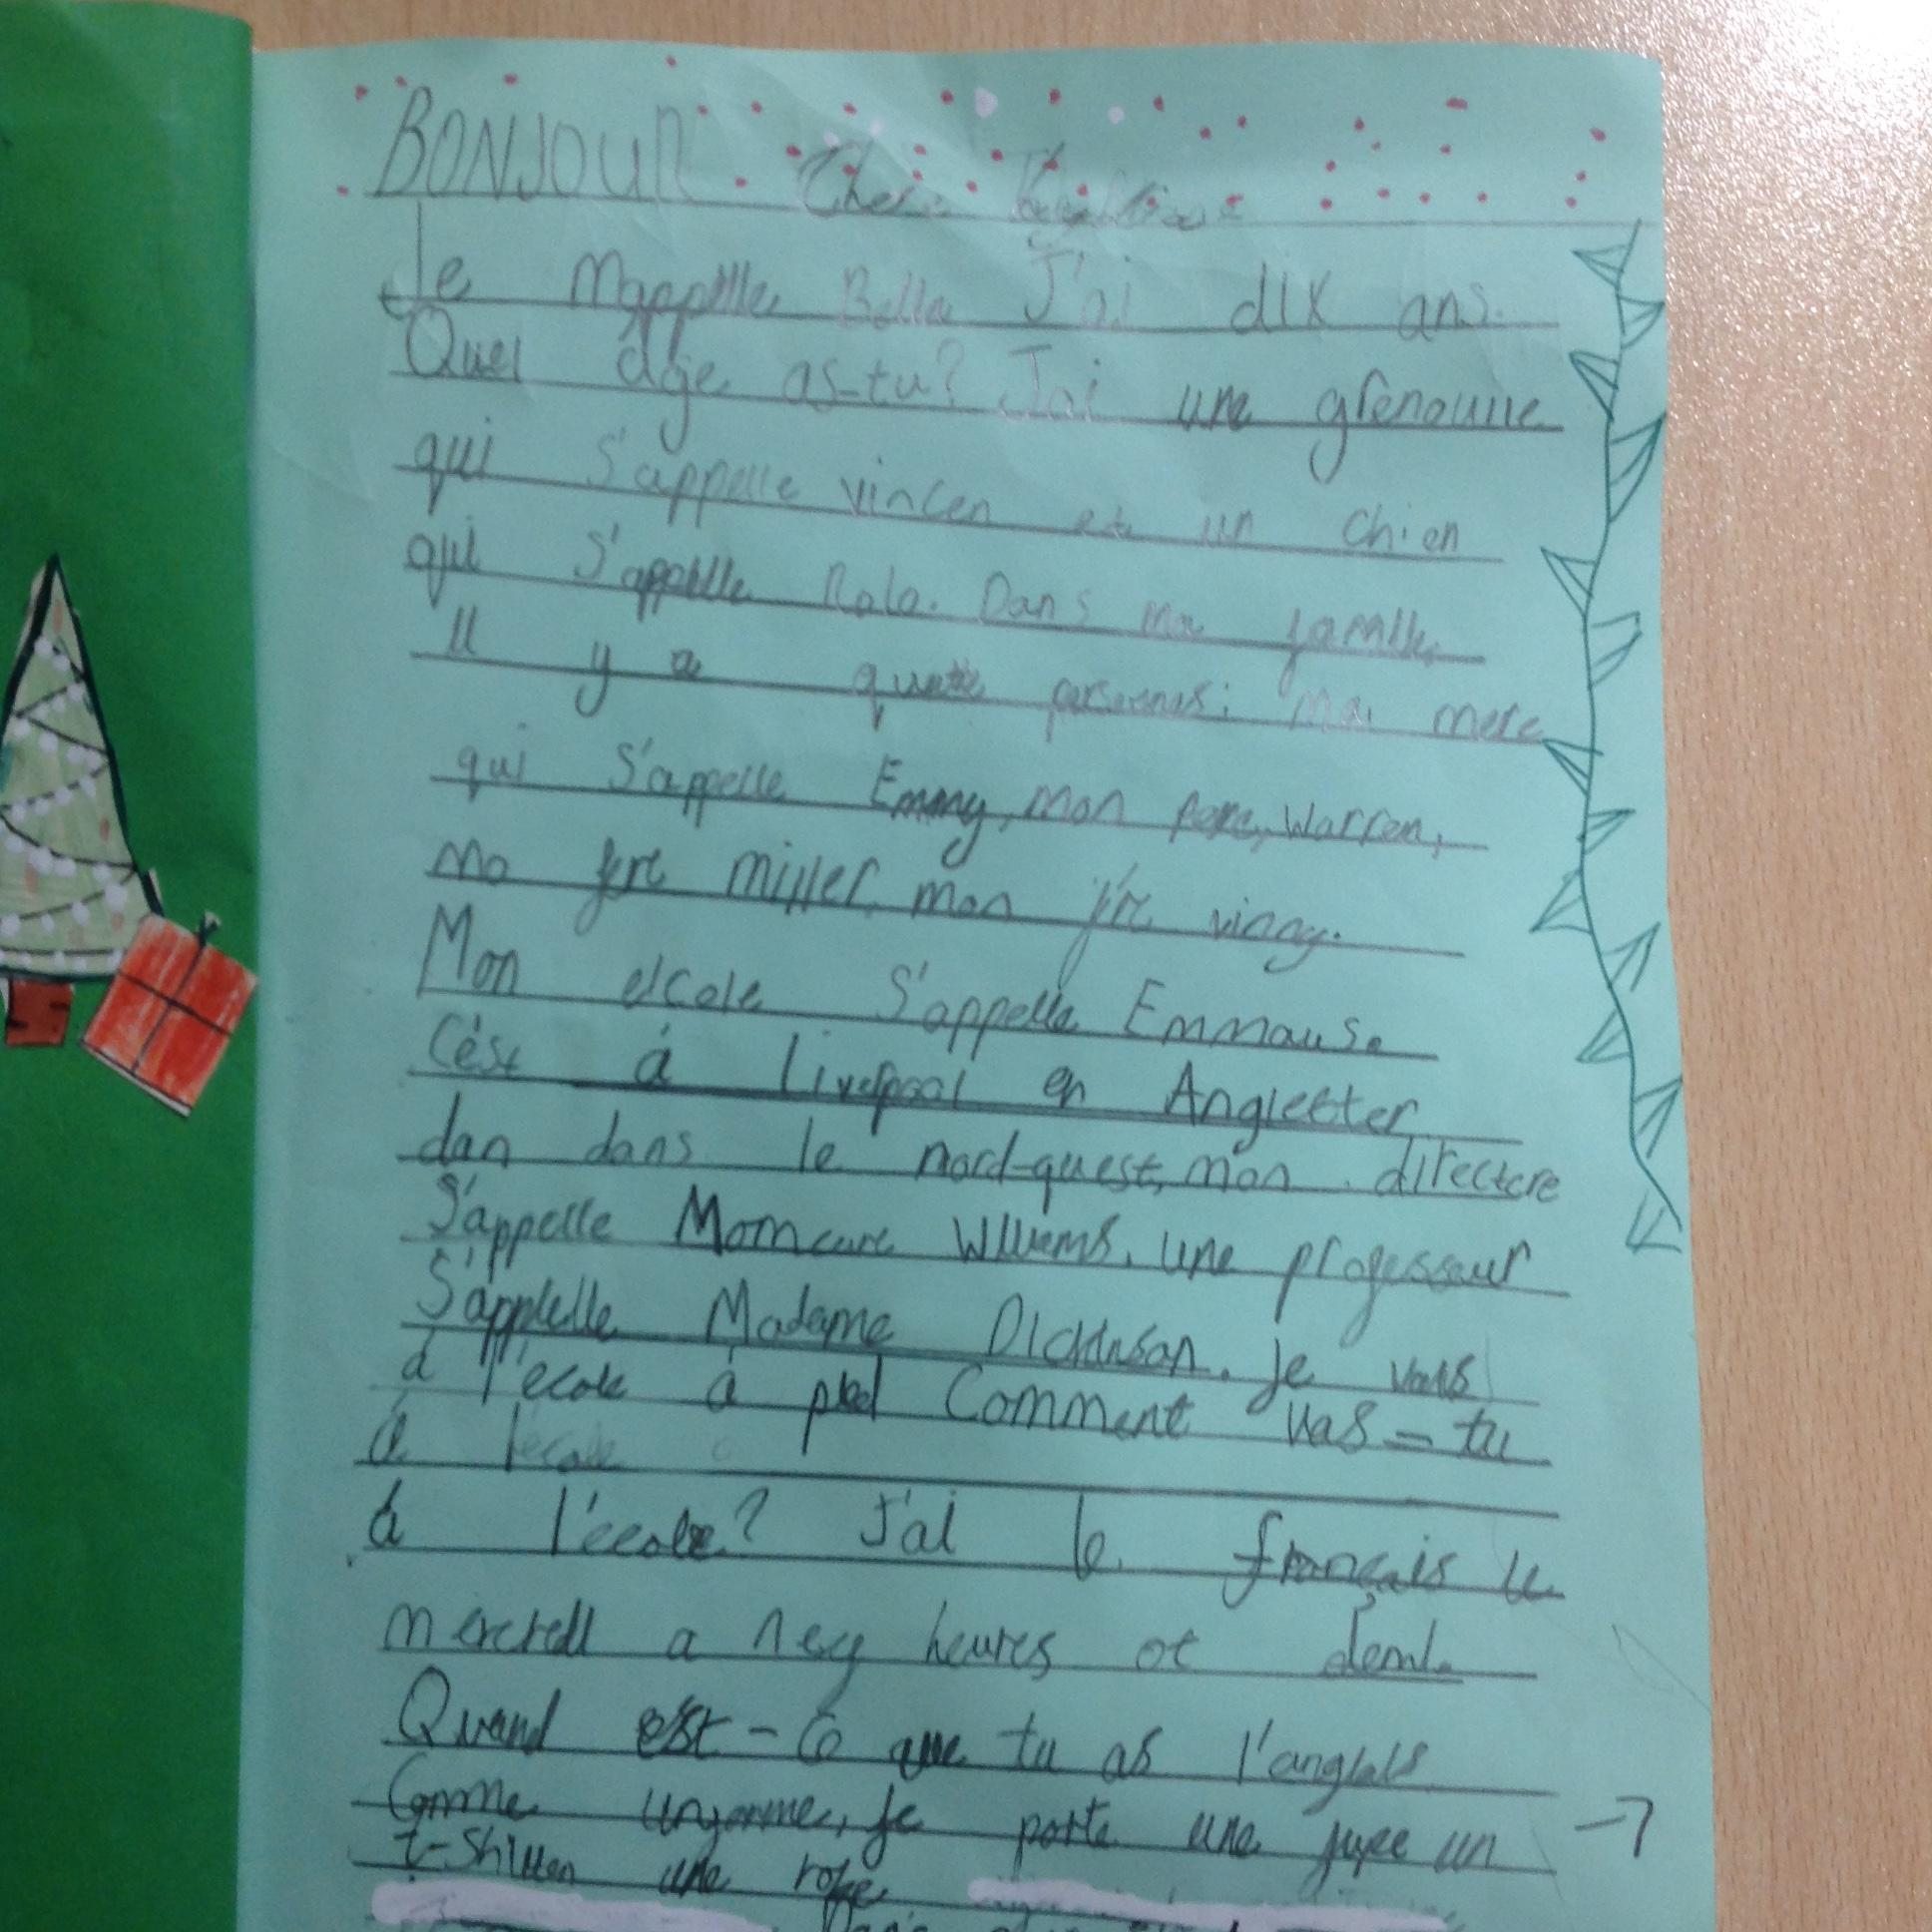 BONJOUR Cher
Je Mappelle Bella J'ai dix ans.
Quel âge as-tu? J'ai une grenouille
qui s'appelle vincen et un chien
qui s'appelle Rolo. Dans ma famille
Il y a quatre personnes: ma mere
qui s'appelle Emmy, mon pere, Warren,
ma fere miller mon fre vinny.
Mon elcole s'appelle Emmaus.
Cést á Liverpool en Angletter
dan dans le nord-quest, mon directere
S'appelle Williems, une professeur
S'applelle Madame Dickinson. Je vais
á l'école á pied Comment vas-tu
á l'ecole
á l'école? J'ai le français le
mercredi a neuf heures et demi.
Quand est-ce que tu as l'anglais
Comme uniforme, je porte une jupe un
une robe